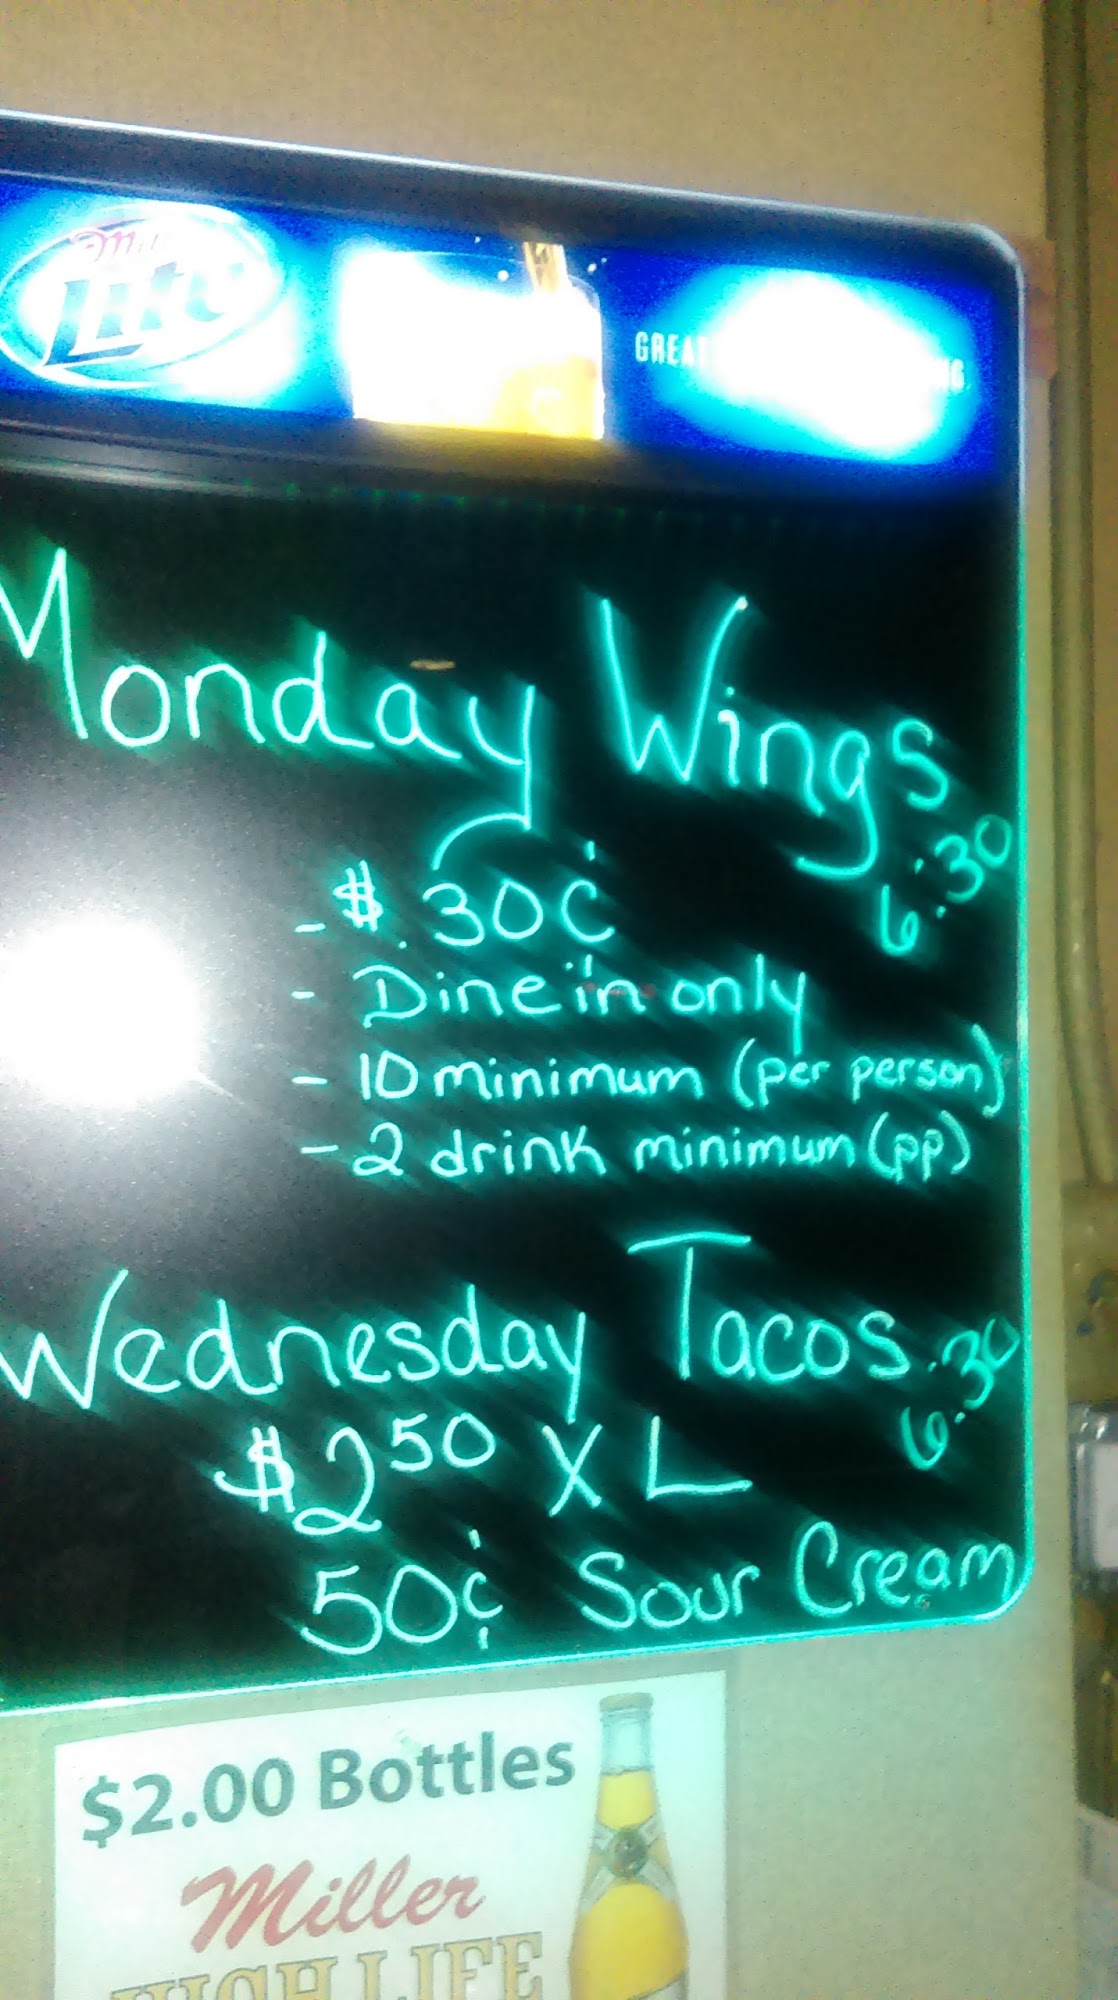 Lite
GREAT
Monday Wings
6:30
- $.30¢
- Dine in only
- 10 minimum (per person)
- 2 drink minimum (pp)
Wednesday Tacos
6:30
$2.50 XL
50¢ Sour Cream
$2.00 Bottles
Miller
HIGH LIFE